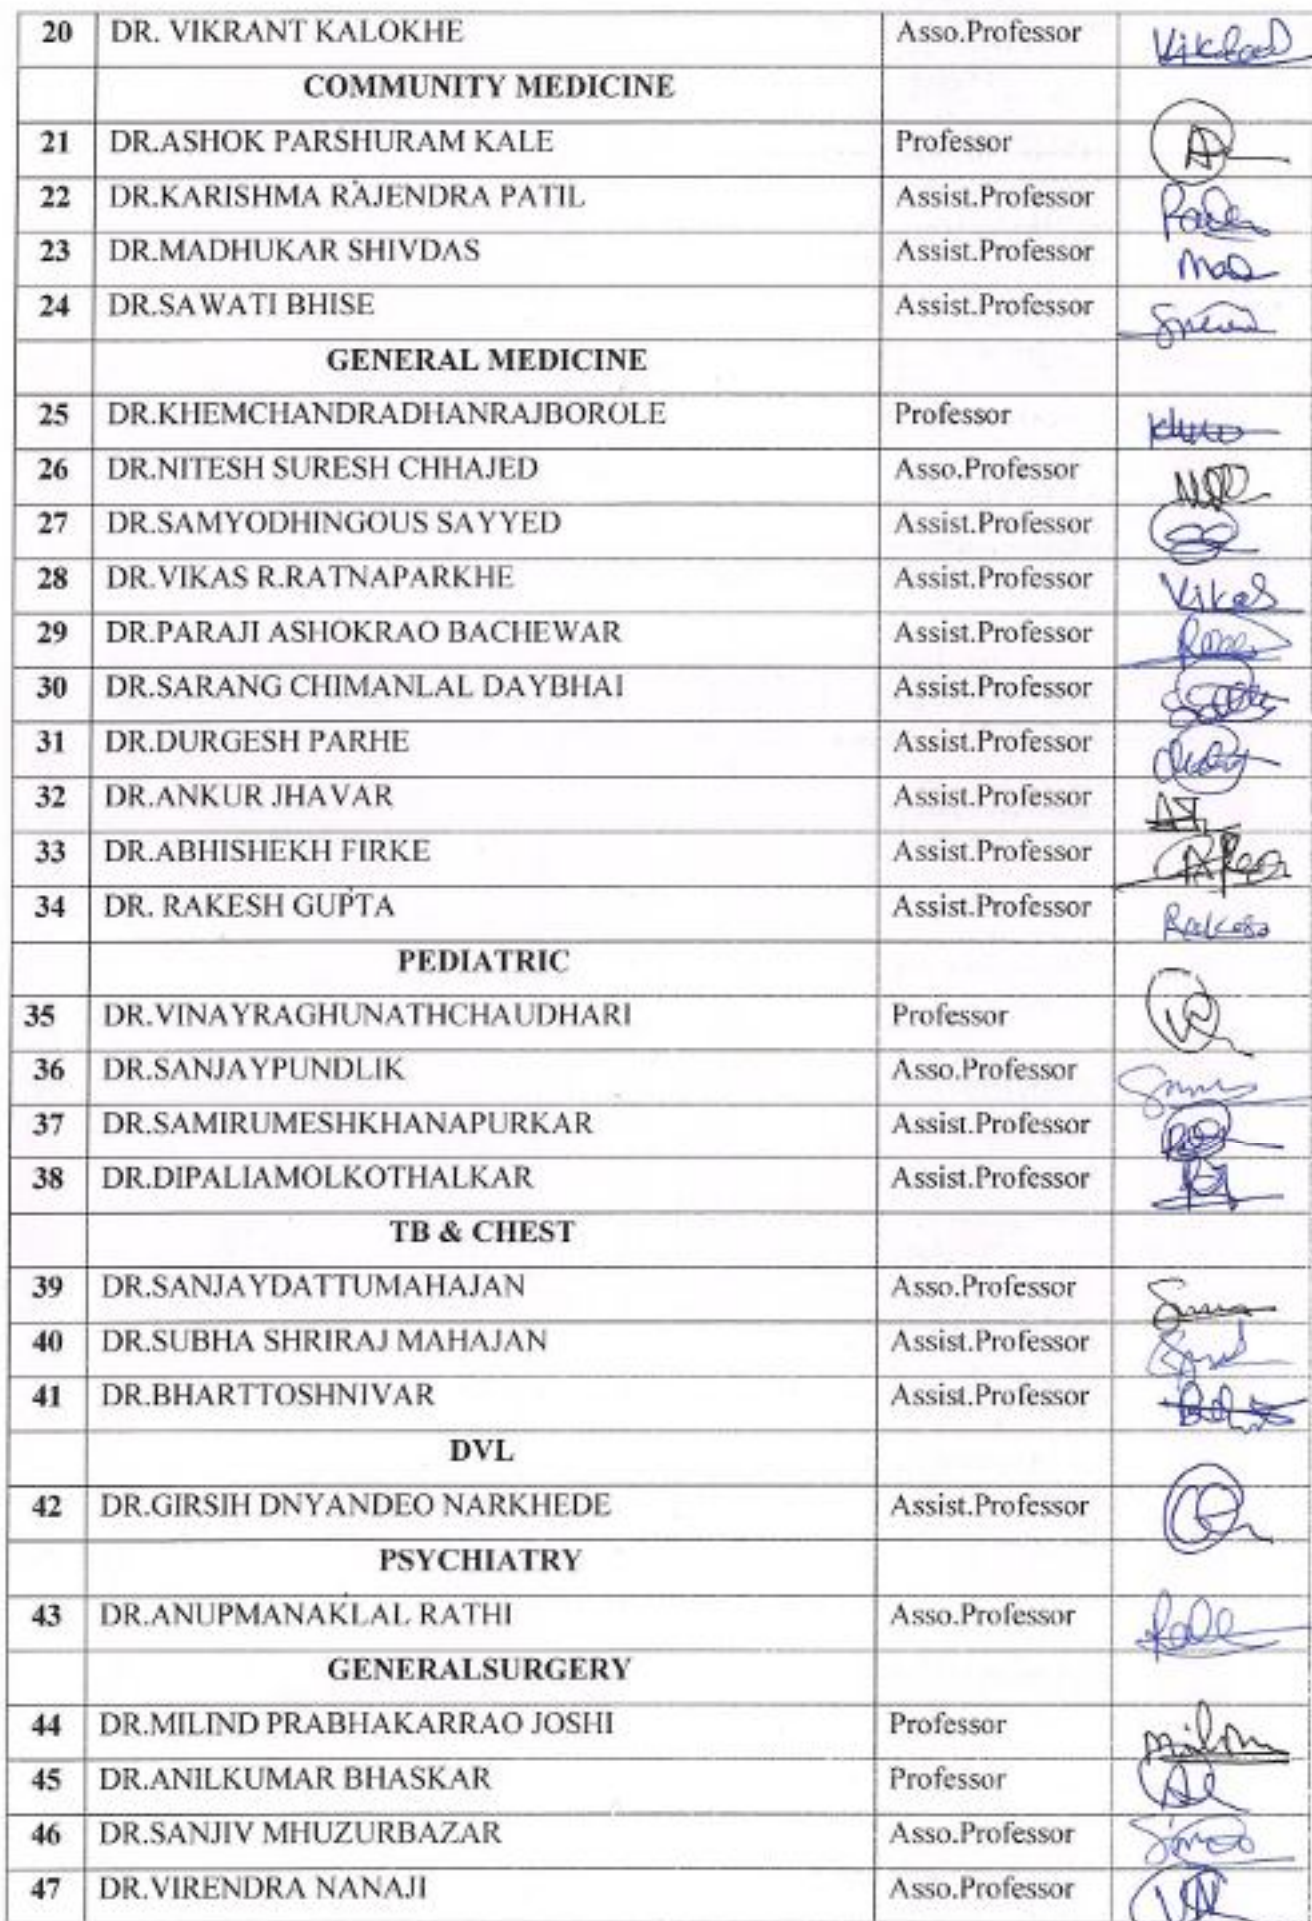 20 DR. VIKRANT KALOKHE Asso.Professor
COMMUNITY MEDICINE
21 DR.ASHOK PARSHURAM KALE Professor
22 DR.KARISHMA RAJENDRA PATIL Assist.Professor
23 DR.MADHUKAR SHIVDAS Assist.Professor
24 DR.SAWATI BHISE Assist.Professor
GENERAL MEDICINE
25 DR.KHEMCHANDRADHANRAJBOROLE Professor
26 DR.NITESH SURESH CHHAJED Asso.Professor
27 DR.SAMYODHINGOUS SAYYED Assist.Professor
28 DR.VIKAS R.RATNAPARKHE Assist.Professor Vikas
29 DR.PARAJI ASHOKRAO BACHEWAR Assist.Professor
30 DR.SARANG CHIMANLAL DAYBHAI Assist.Professor
31 DR.DURGESH PARHE Assist.Professor
32 DR.ANKUR JHAVAR Assist.Professor
33 DR.ABHISHEKH FIRKE Assist.Professor
34 DR. RAKESH GUPTA Assist.Professor
PEDIATRIC
35 DR.VINAYRAGHUNATHCHAUDHARI Professor
36 DR.SANJAYPUNDLIK Asso.Professor
37 DR.SAMIRUMESHKHANAPURKAR Assist.Professor
38 DR.DIPALIAMOLKOTHALKAR Assist.Professor
TB & CHEST
39 DR.SANJAYDATTUMAHAJAN Asso.Professor
40 DR.SUBHA SHRIRAJ MAHAJAN Assist.Professor
41 DR.BHARTTOSHNIVAR Assist.Professor
DVL
42 DR.GIRSIH DNYANDEO NARKHEDE Assist.Professor
PSYCHIATRY
43 DR.ANUPMANAKLAL RATHI Asso.Professor
GENERALSURGERY
44 DR.MILIND PRABHAKARRAO JOSHI Professor
45 DR.ANILKUMAR BHASKAR Professor
46 DR.SANJIV MHUZURBAZAR Asso.Professor
47 DR.VIRENDRA NANAJI Asso.Professor